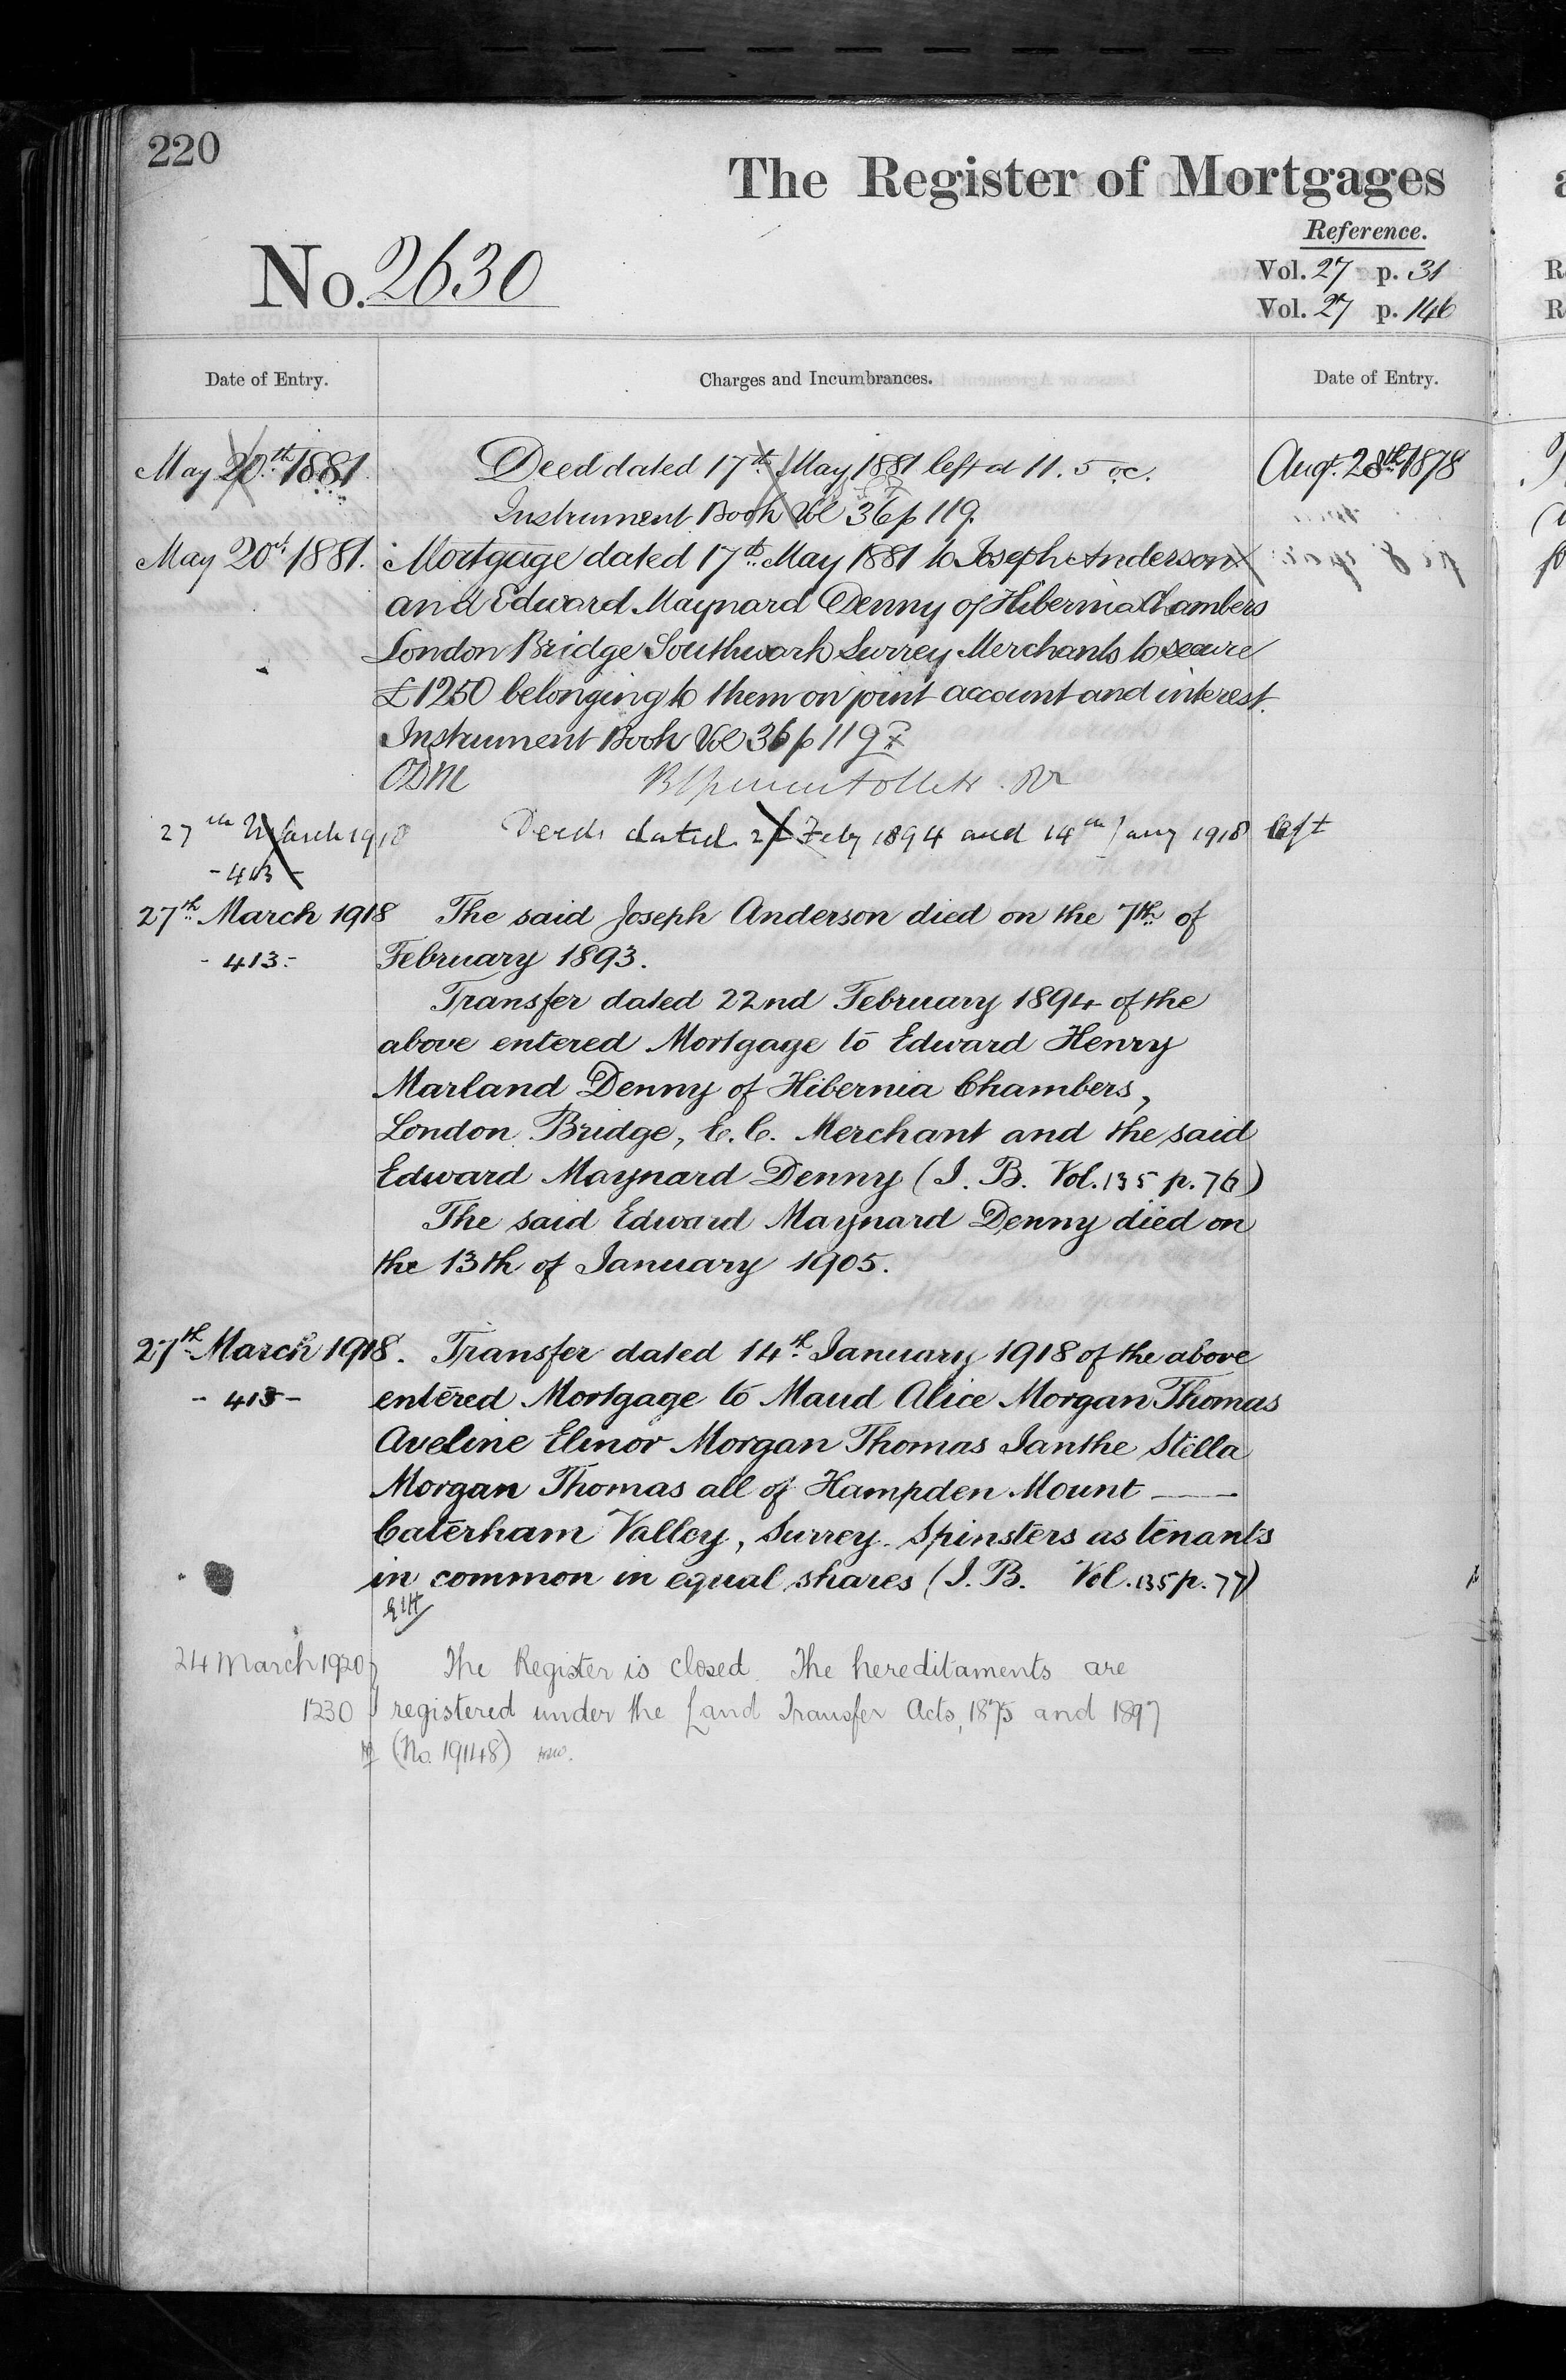 220
The Register of Mortgages
Reference.
No. 2630
Vol. 27 p. 31
Vol. 27 p. 146
Date of Entry.
Charges and Incumbrances.
Date of Entry.
May 20th 1881
Deed dated 17th May 1881 left at 11.5 oc.
Aug. 28th 1878
Instrument Book Vol 36 p 119.
May 20th 1881.
Mortgage dated 17th May 1881 to Joseph Anderson
and Edward Maynard Denny of Hibernia Chambers
London Bridge Southwark Surrey Merchants to secure
£1250 belonging to them on joint account and interest.
Instrument Book Vol 36 p 119
27th March 1918
Deeds dated Feby 1894 and 14th Jany 1918 left
- 413 -
27th March 1918
The said Joseph Anderson died on the 7th of
- 413 -
February 1893.
Transfer dated 22nd February 1894 of the
above entered Mortgage to Edward Henry
Marland Denny of Hibernia Chambers,
London Bridge, E.C. Merchant and the said
Edward Maynard Denny (I. B. Vol. 135 p. 76)
The said Edward Maynard Denny died on
the 13th of January 1905.
27th March 1918.
Transfer dated 14th January 1918 of the above
- 413 -
entered Mortgage to Maud Alice Morgan Thomas
Aveline Elinor Morgan Thomas Ianthe Stella
Morgan Thomas all of Hampden Mount
Caterham Valley, Surrey. Spinsters as tenants
in common in equal shares (I. B. Vol. 135 p. 77)
24 March 1920
The Register is closed. The hereditaments are
1230
registered under the Land Transfer Acts, 1875 and 1897
(No. 19148)